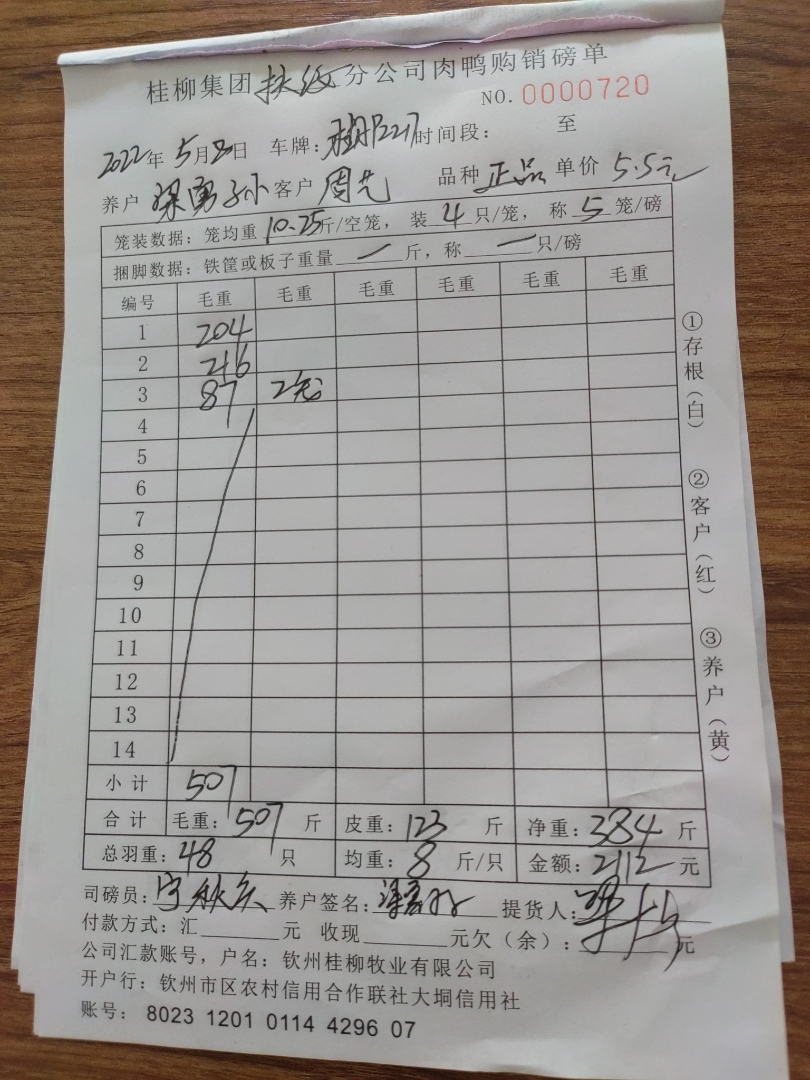 桂柳集团扶绥分公司肉鸭购销磅单
NO. 0000720
2022年5月8日 车牌: 227 时间段: 至
养户 梁勇 客户 周 品种 正品 单价 5.5元
笼装数据: 笼均重 10.25 斤/空笼, 装 4 只/笼, 称 5 笼/磅
捆脚数据: 铁筐或板子重量 一 斤, 称 一 只/磅
编号 毛重 毛重 毛重 毛重 毛重 毛重
1 204
2 216
3 87 2笼
4
5
6
7
8
9
10
11
12
13
14
小计 507
合计 毛重: 507 斤 皮重: 123 斤 净重: 384 斤
总羽重: 48 只 均重: 8 斤/只 金额: 2112 元
司磅员: 养户签名: 提货人:
付款方式: 汇 元 收现 元欠(余): 元
公司汇款账号, 户名: 钦州桂柳牧业有限公司
开户行: 钦州市区农村信用合作联社大垌信用社
账号: 8023 1201 0114 4296 07
①存根(白)
②客户(红)
③养户(黄)